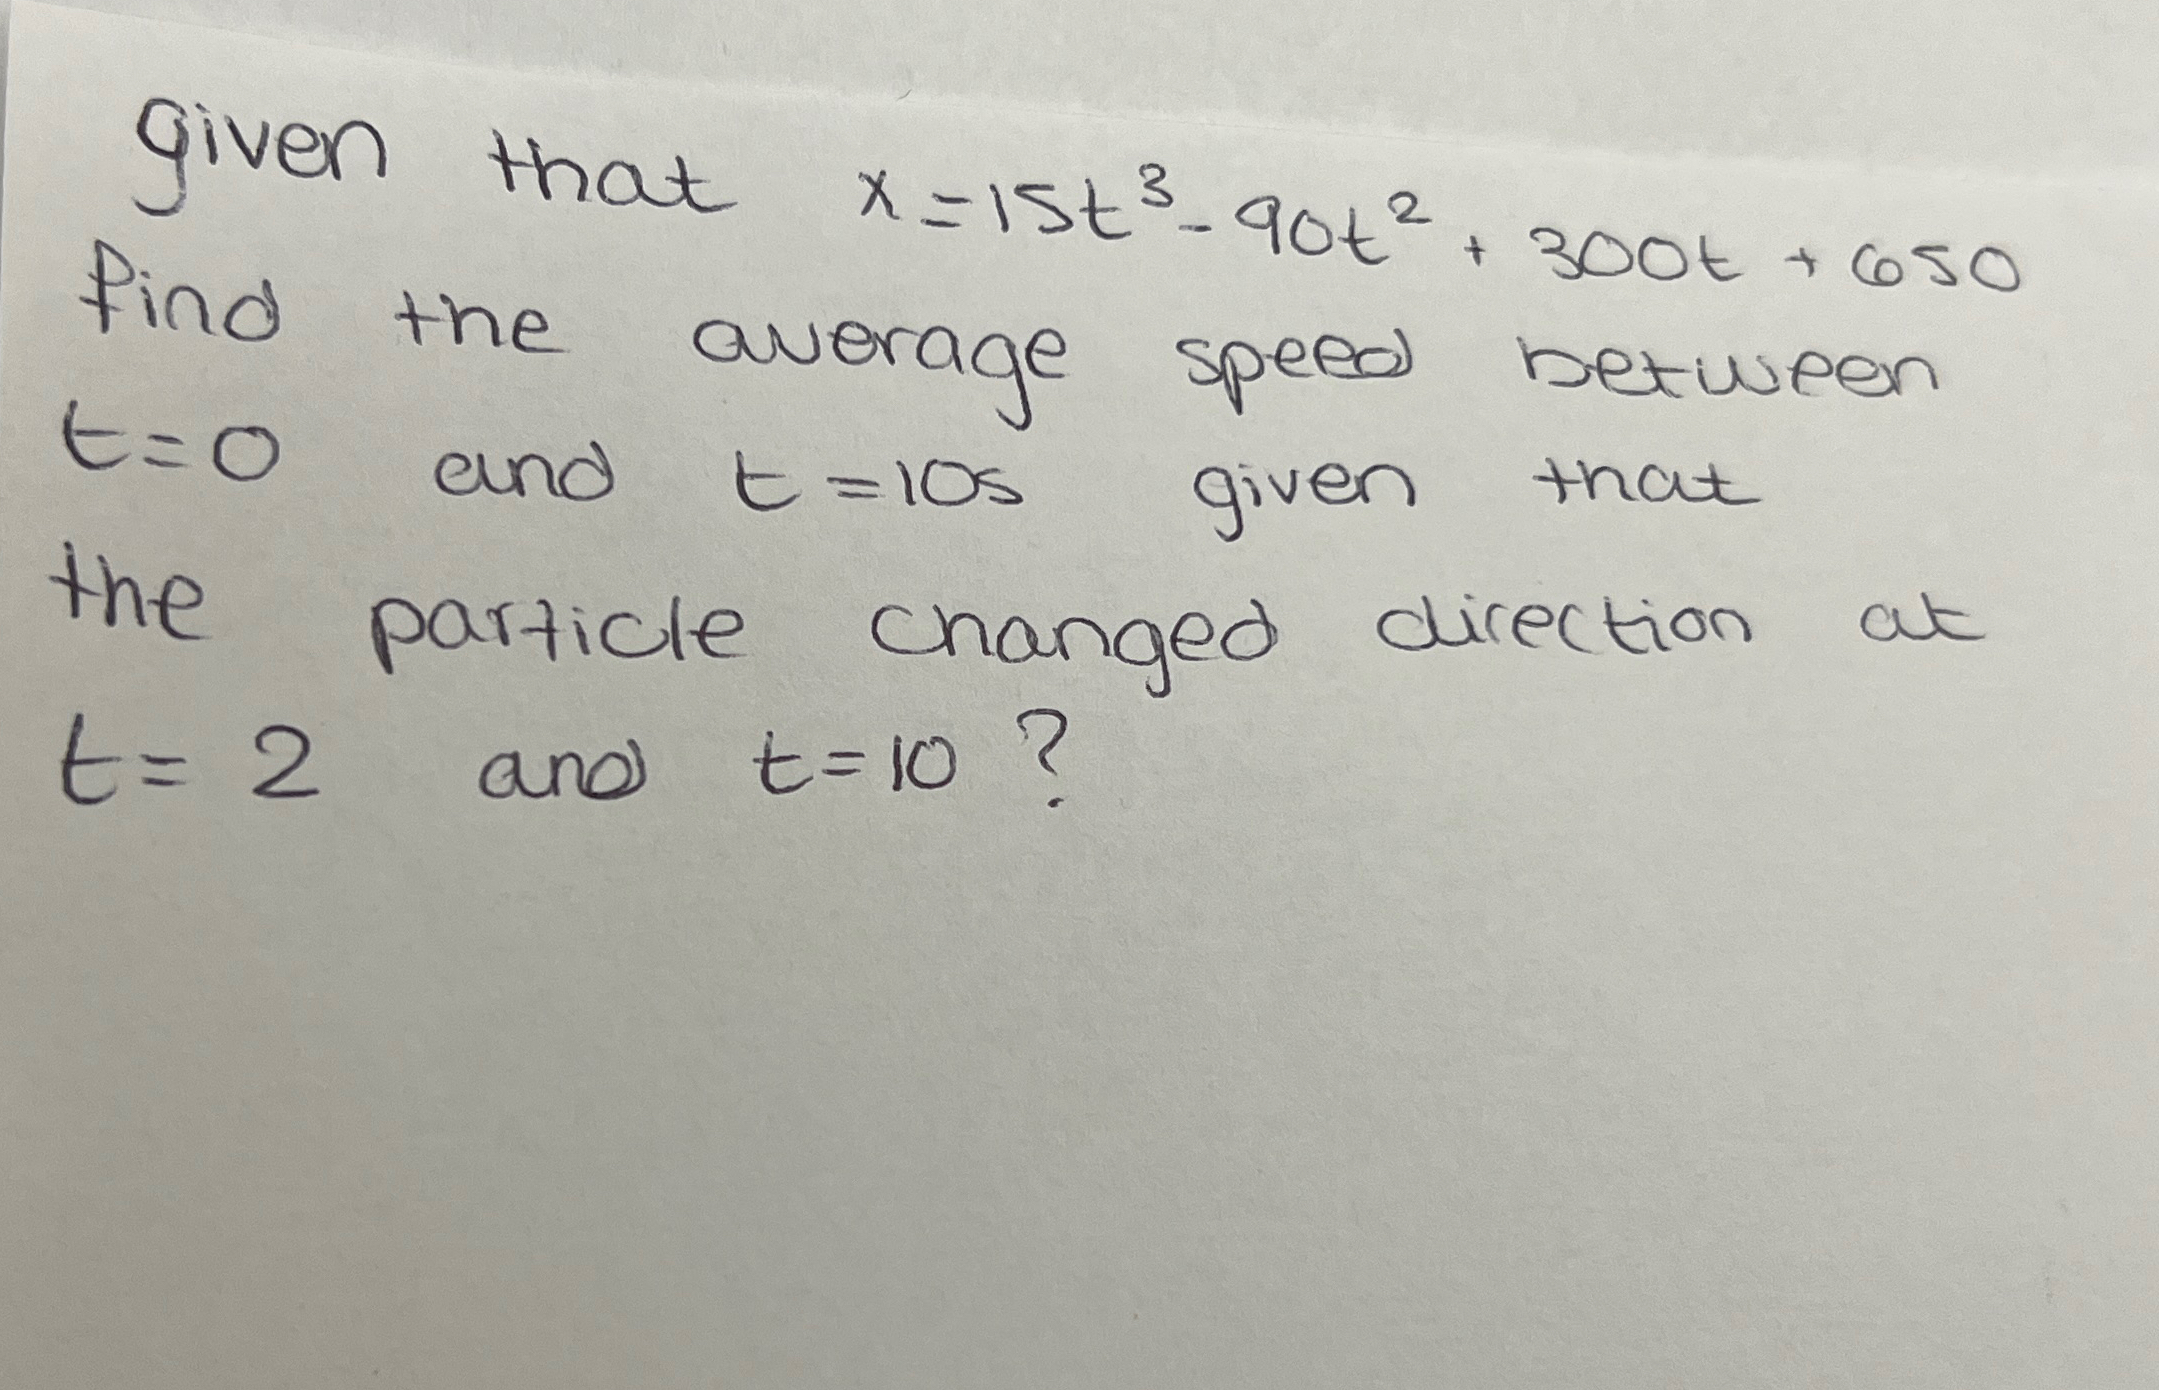 given that x=15t³-90t²+300t+650
find the average speed between
t=0 and t=10s given that
the particle changed direction at
t=2 and t=10?